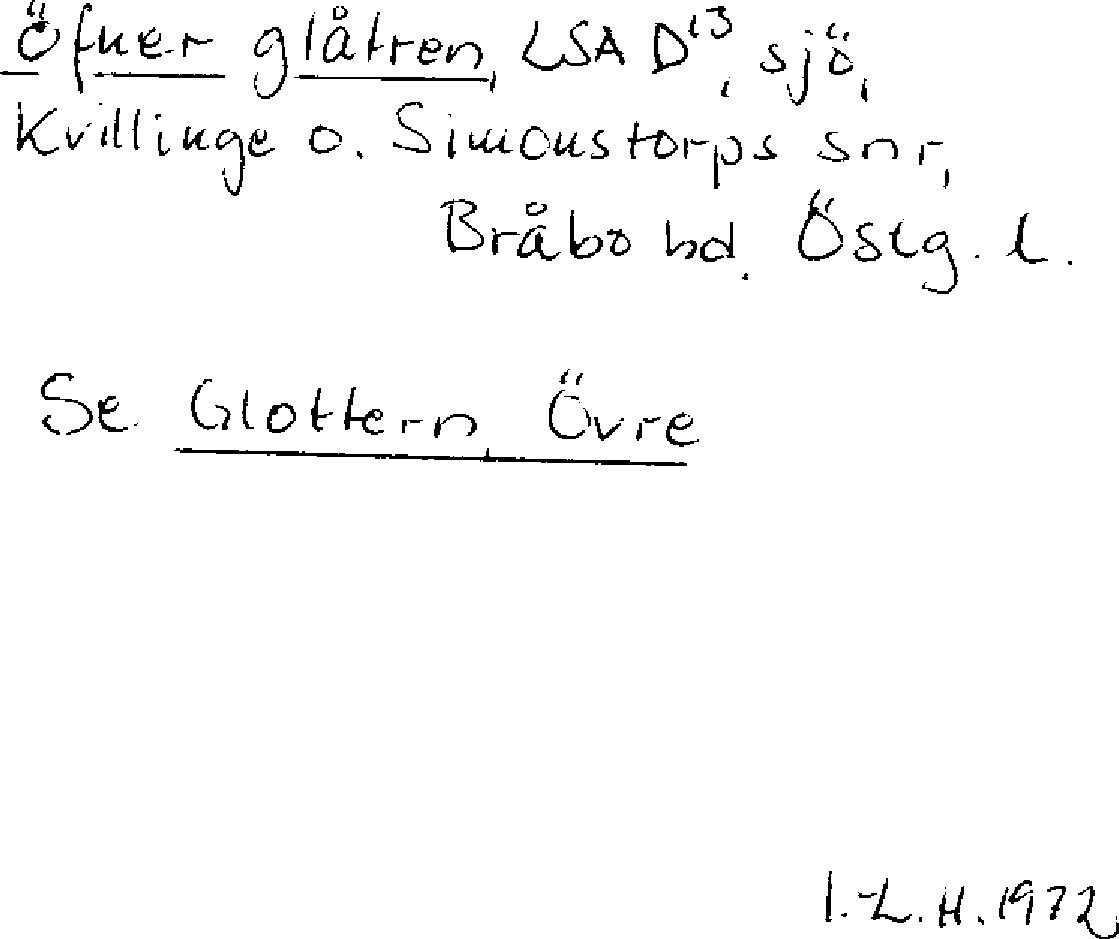 Öfuer glåtren, LSA D¹³, sjö,
Kvillinge o. Simonstorps snr,
Bråbo hd. Östg. l.
Se Glottern, Övre
I.-L. H. 1972